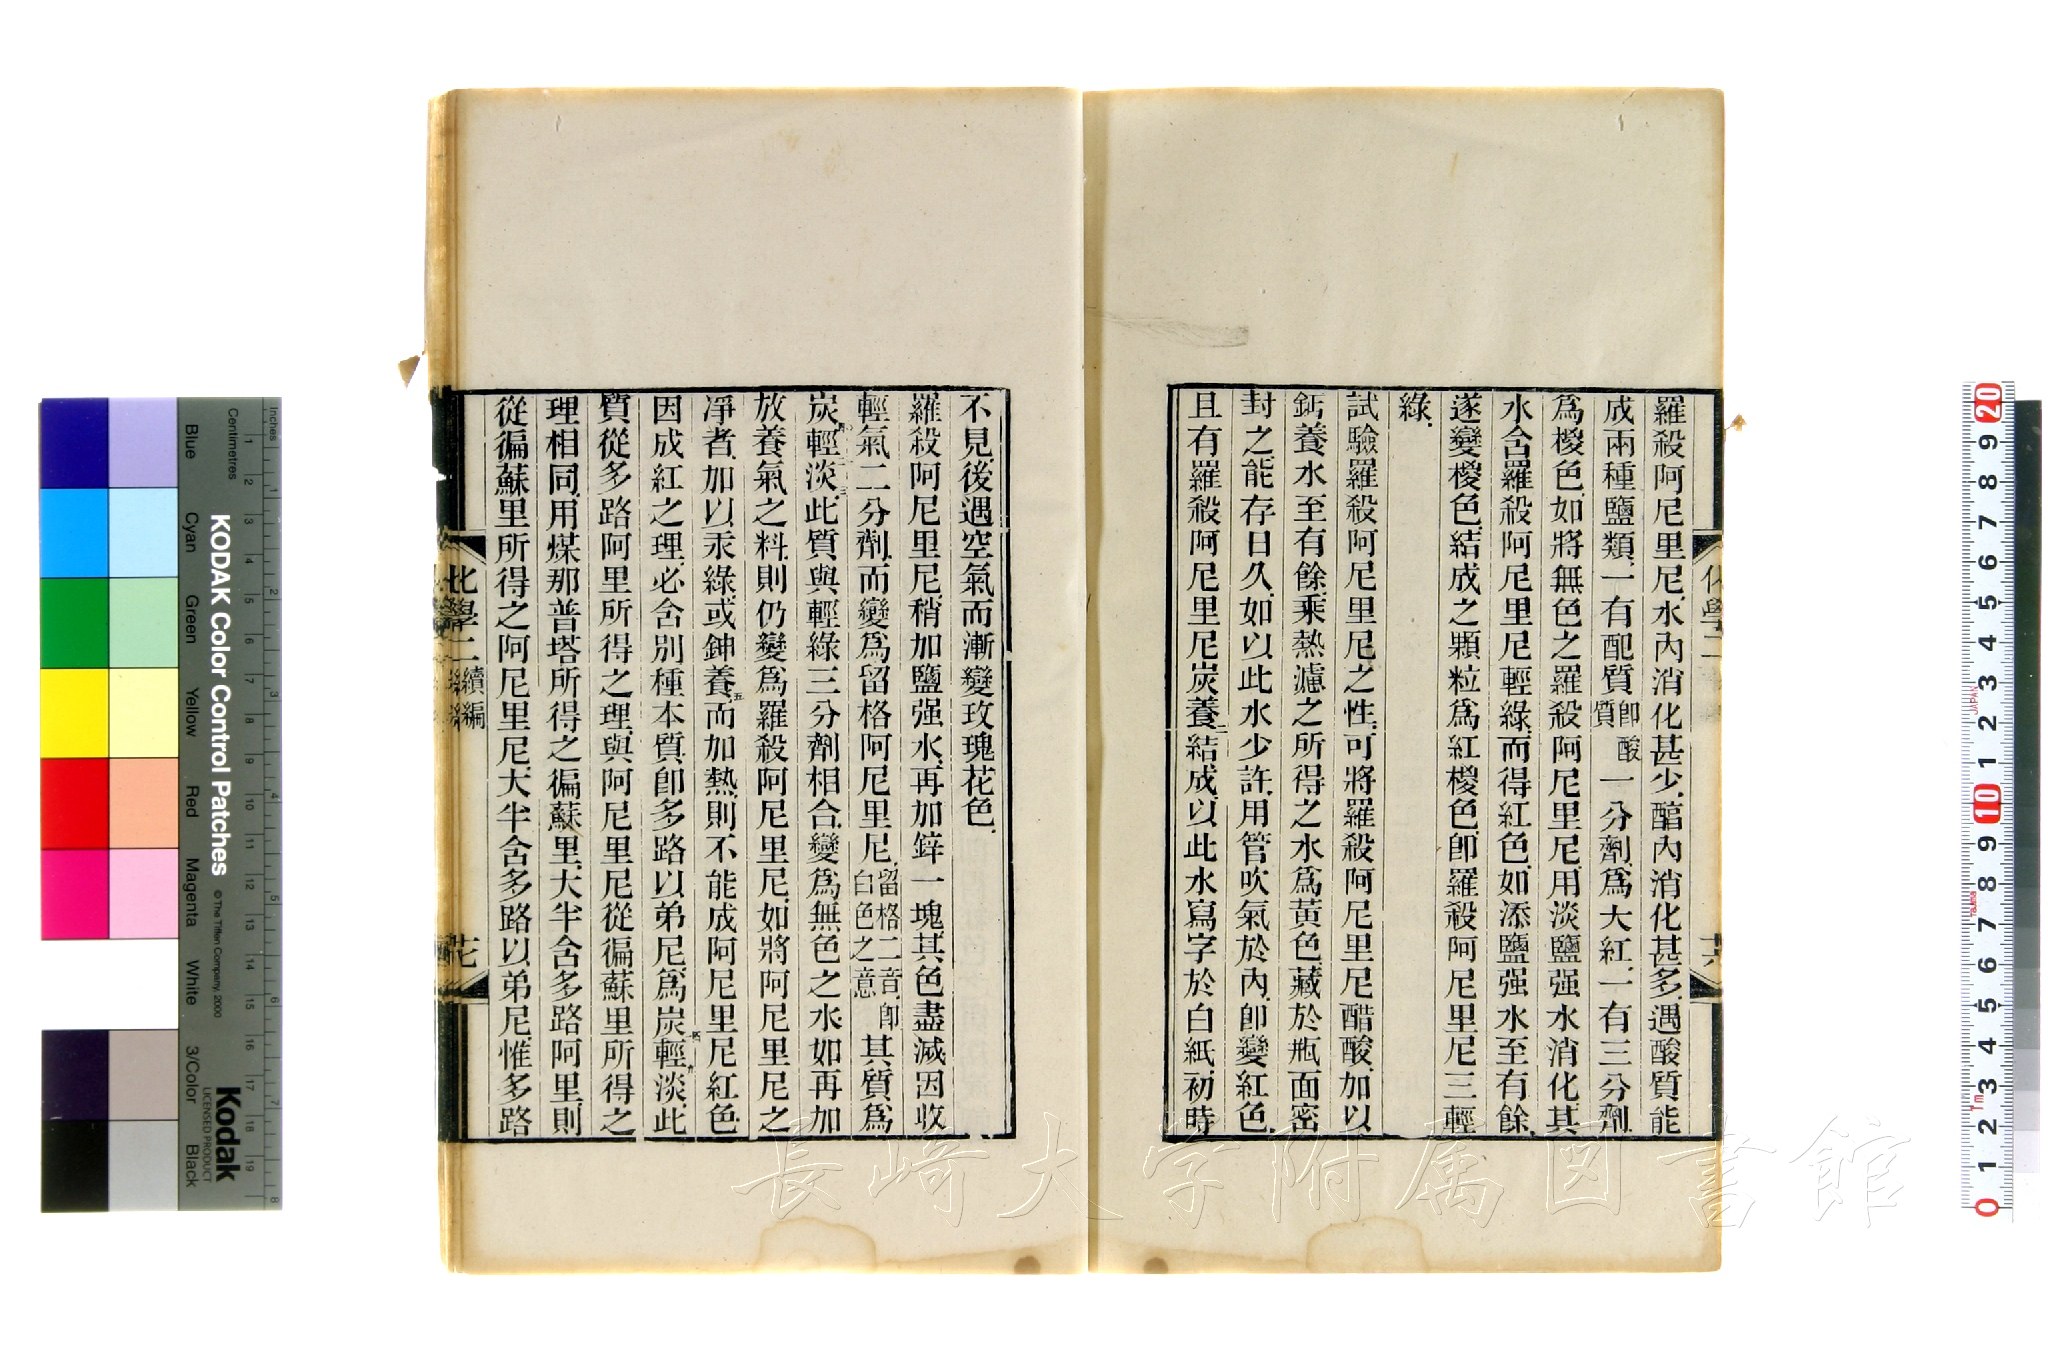 羅殺阿尼里尼水內消化甚少醕內消化甚多遇酸質能
成兩種鹽類一有配質卽酸質一分劑爲大紅一有三分劑
爲椶色如將無色之羅殺阿尼里尼用淡鹽强水消化其
水含羅殺阿尼里尼輕綠而得紅色如添鹽强水至有餘
遂變椶色結成之顆粒爲紅椶色卽羅殺阿尼里尼三輕
綠
試驗羅殺阿尼里尼之性可將羅殺阿尼里尼醋酸加以
鈣養水至有餘乘熱濾之所得之水爲黃色藏於瓶面密
封之能存日久如以此水少許用管吹氣於內卽變紅色
且有羅殺阿尼里尼炭養二結成以此水寫字於白紙初時
不見後遇空氣而漸變玫瑰花色
羅殺阿尼里尼稍加鹽强水再加鋅一塊其色盡滅因收
輕氣二分劑而變爲留格阿尼里尼留格二音卽白色之意其質爲
炭輕淡此質與輕綠三分劑相合變爲無色之水如再加
放養氣之料則仍變爲羅殺阿尼里尼如將阿尼里尼之
淨者加以汞綠或鉮養五而加熱則不能成阿尼里尼紅色
因成紅之理必含別種本質卽多路以弟尼爲炭輕淡此
質從多路阿里所得之理與阿尼里尼從徧蘇里所得之
理相同用煤那普塔所得之徧蘇里大半含多路阿里則
從徧蘇里所得之阿尼里尼大半含多路以弟尼惟多路
化學二 續編
KODAK Color Control Patches
© The Tiffen Company, 2000
Kodak
LICENSED PRODUCT
Inches
Centimetres
Blue
Cyan
Green
Yellow
Red
Magenta
White
3/Color
Black
長崎大学附属図書館